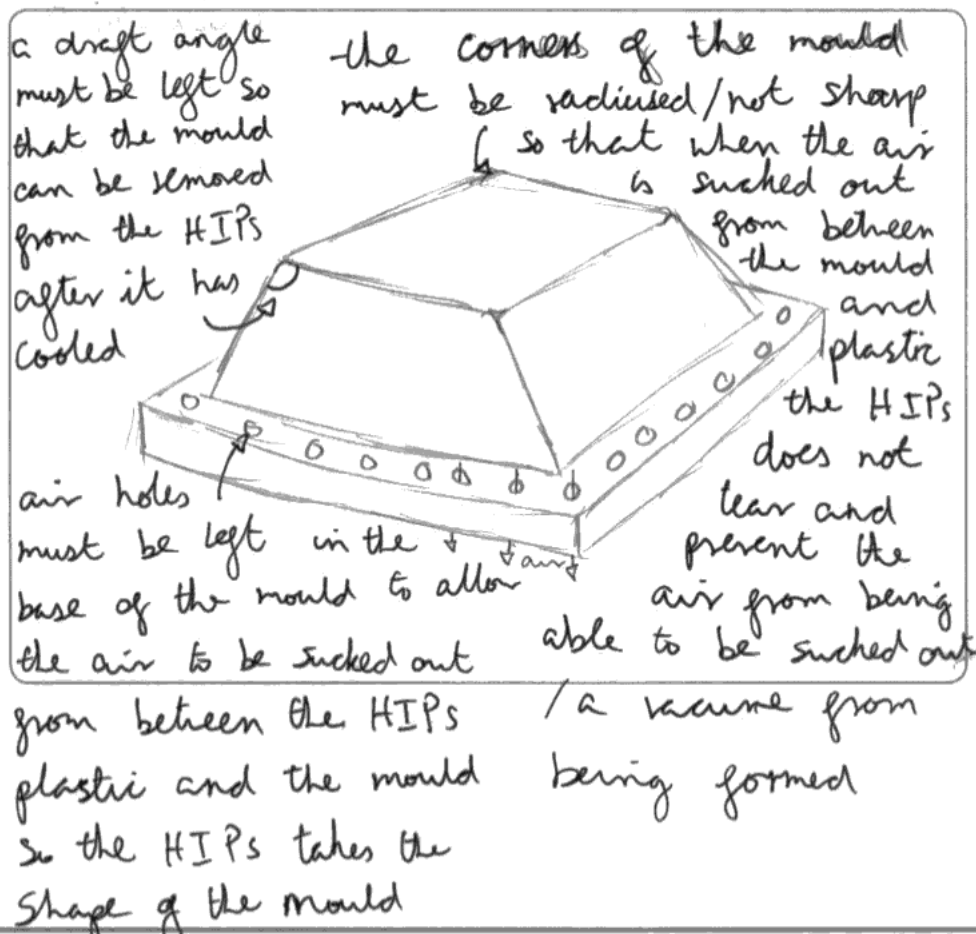 a draft angle
must be left so
that the mould
can be removed
from the HIPs
after it has
cooled
the corners of the mould
must be radiused/not sharp
so that when the air
is sucked out
from between
the mould
and
plastic
the HIPs
does not
tear and
prevent the
air from being
able to be sucked out
/a vacume from
being formed
air holes
must be left in the
base of the mould to allow
the air to be sucked out
from between the HIPs
plastic and the mould
so the HIPs takes the
shape of the mould
air